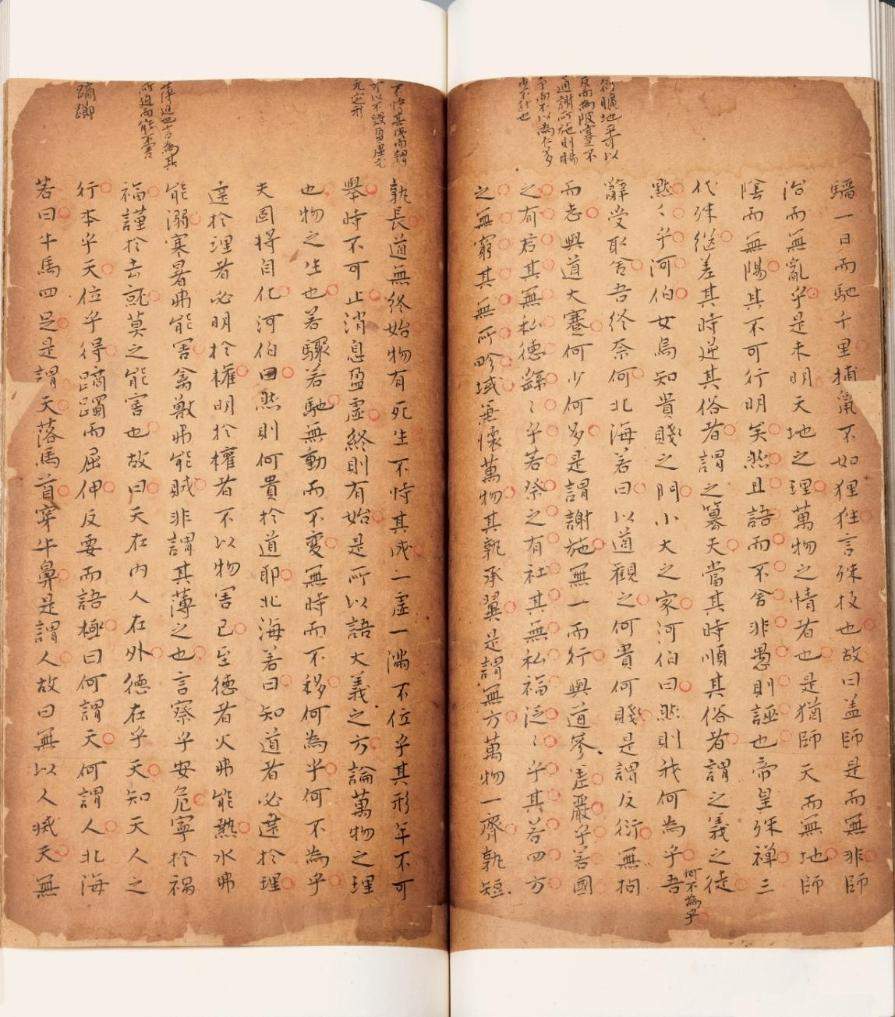 驥一日而馳千里捕鼠不如狸狌言殊技也故曰盖師是而無非師
治而無亂乎是未明天地之理萬物之情者也是猶師天而無地師
陰而無陽其不可行明矣然且語而不舍非愚則誣也帝皇殊禅三
代殊継差其時逆其俗者謂之篡夫當其時順其俗者謂之義之徒
默〻乎河伯女烏知貴賤之門小大之家河伯曰然則我何為乎吾
何不為乎
辭受取舍吾终奈何北海若曰以道觀之何貴何賤是謂反衍無拘
而志與道大蹇何少何多是謂謝施無一而行與道参差嚴乎若國
之有君其無私德繇〻乎若祭之有社其無私福泛〻乎其若四方
之無窮其無所畛域兼懷萬物其孰承翼是謂無方萬物一齊孰短
孰長道無终始物有死生不恃其成一虚一满不位乎其形年不可
舉時不可止消息盈虚終則有始是所以語大義之方論萬物之理
也物之生也若驟若馳無動而不變無時而不移何為乎何不為乎
夫固將自化河伯曰然則何貴於道耶北海若曰知道者必達於理
達於理者必明於權明於權者不以物害己至德者火弗能熱水弗
能溺寒暑弗能害禽獸弗能賊非謂其薄之也言察乎安危寧於禍
福謹於去就莫之能害也故曰天在内人在外德在乎天知天人之
行本乎天位乎得蹢躅而屈伸反要而語極曰何謂天何謂人北海
若曰牛馬四足是謂天落馬首穿牛鼻是謂人故曰無以人滅天無
无定形
薄迫也言為其
所迫而能不害
蹢躅